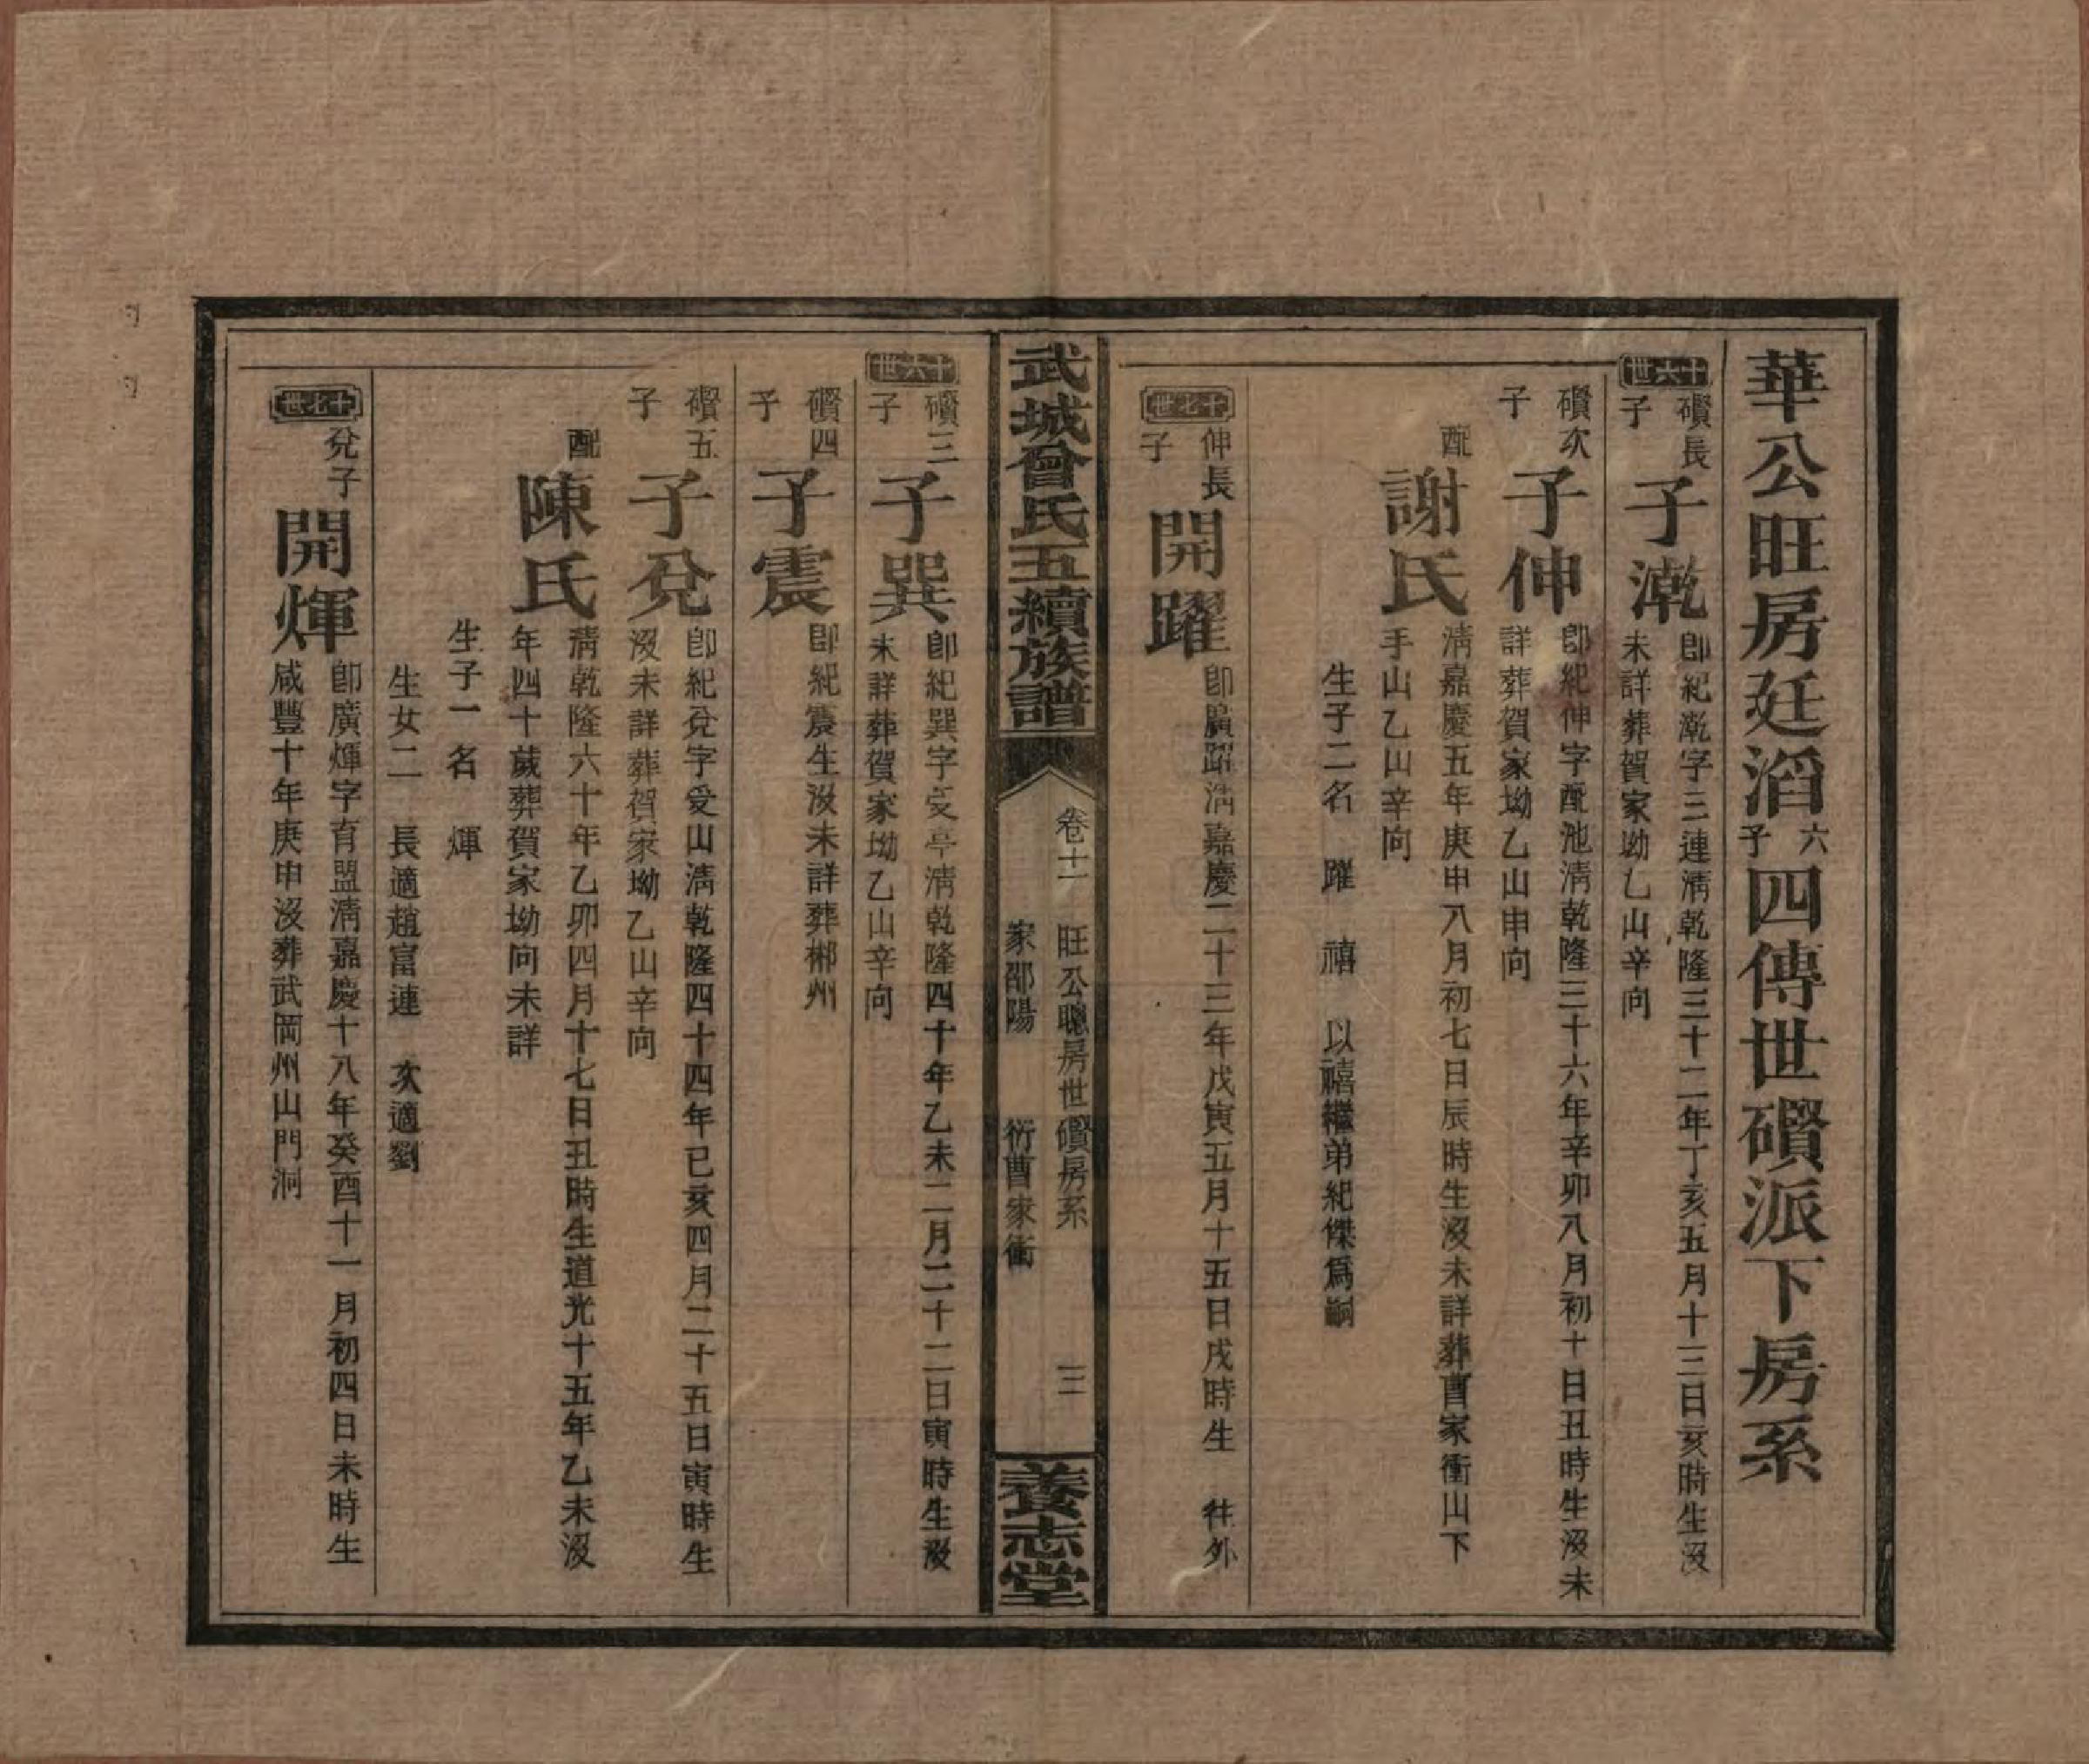 華公旺房廷滔六子四傳世礩派下房系
十六世
礩長子
子漧
卽紀漧字三連淸乾隆三十二年丁亥五月十三日亥時生沒
未詳葬賀家坳乙山辛向
礩次子
子伸
卽紀伸字配池淸乾隆三十六年辛卯八月初十日丑時生沒未
詳葬賀家坳乙山申向
配
謝氏
淸嘉慶五年庚申八月初七日辰時生沒未詳葬曹家衝山下
手山乙山辛向
生子二名 躍 禧 以禧繼弟紀傑爲嗣
十七世
伸長子
開躍
卽廣躍淸嘉慶二十三年戊寅五月十五日戌時生 往外
武城曾氏五續族譜
卷十一 旺公聰房世礩房系 三
家邵陽 衍曹家衝
養志堂
十六世
礩三子
子巽
卽紀巽字受亭淸乾隆四十年乙未二月二十二日寅時生沒
未詳葬賀家坳乙山辛向
礩四子
子震
卽紀震生沒未詳葬郴州
礩五子
子兌
卽紀兌字受山淸乾隆四十四年己亥四月二十五日寅時生
沒未詳葬賀家坳乙山辛向
配
陳氏
淸乾隆六十年乙卯四月十七日丑時生道光十五年乙未沒
年四十歲葬賀家坳向未詳
生子一名 煇
生女二 長適趙富連 次適劉
十七世
兌子
開煇
卽廣煇字育盟淸嘉慶十八年癸酉十一月初四日未時生
咸豐十年庚申沒葬武岡州山門洞